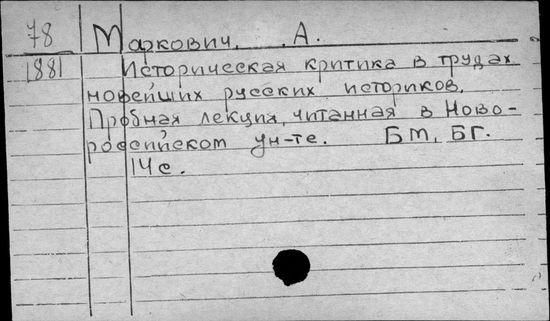 78 Маркович, А.
1881 Историческая критика в трудах
новейших русских историков.
Пробная лекция, читанная в Ново-
российском ун-те. БМ, БГ.
14 с.